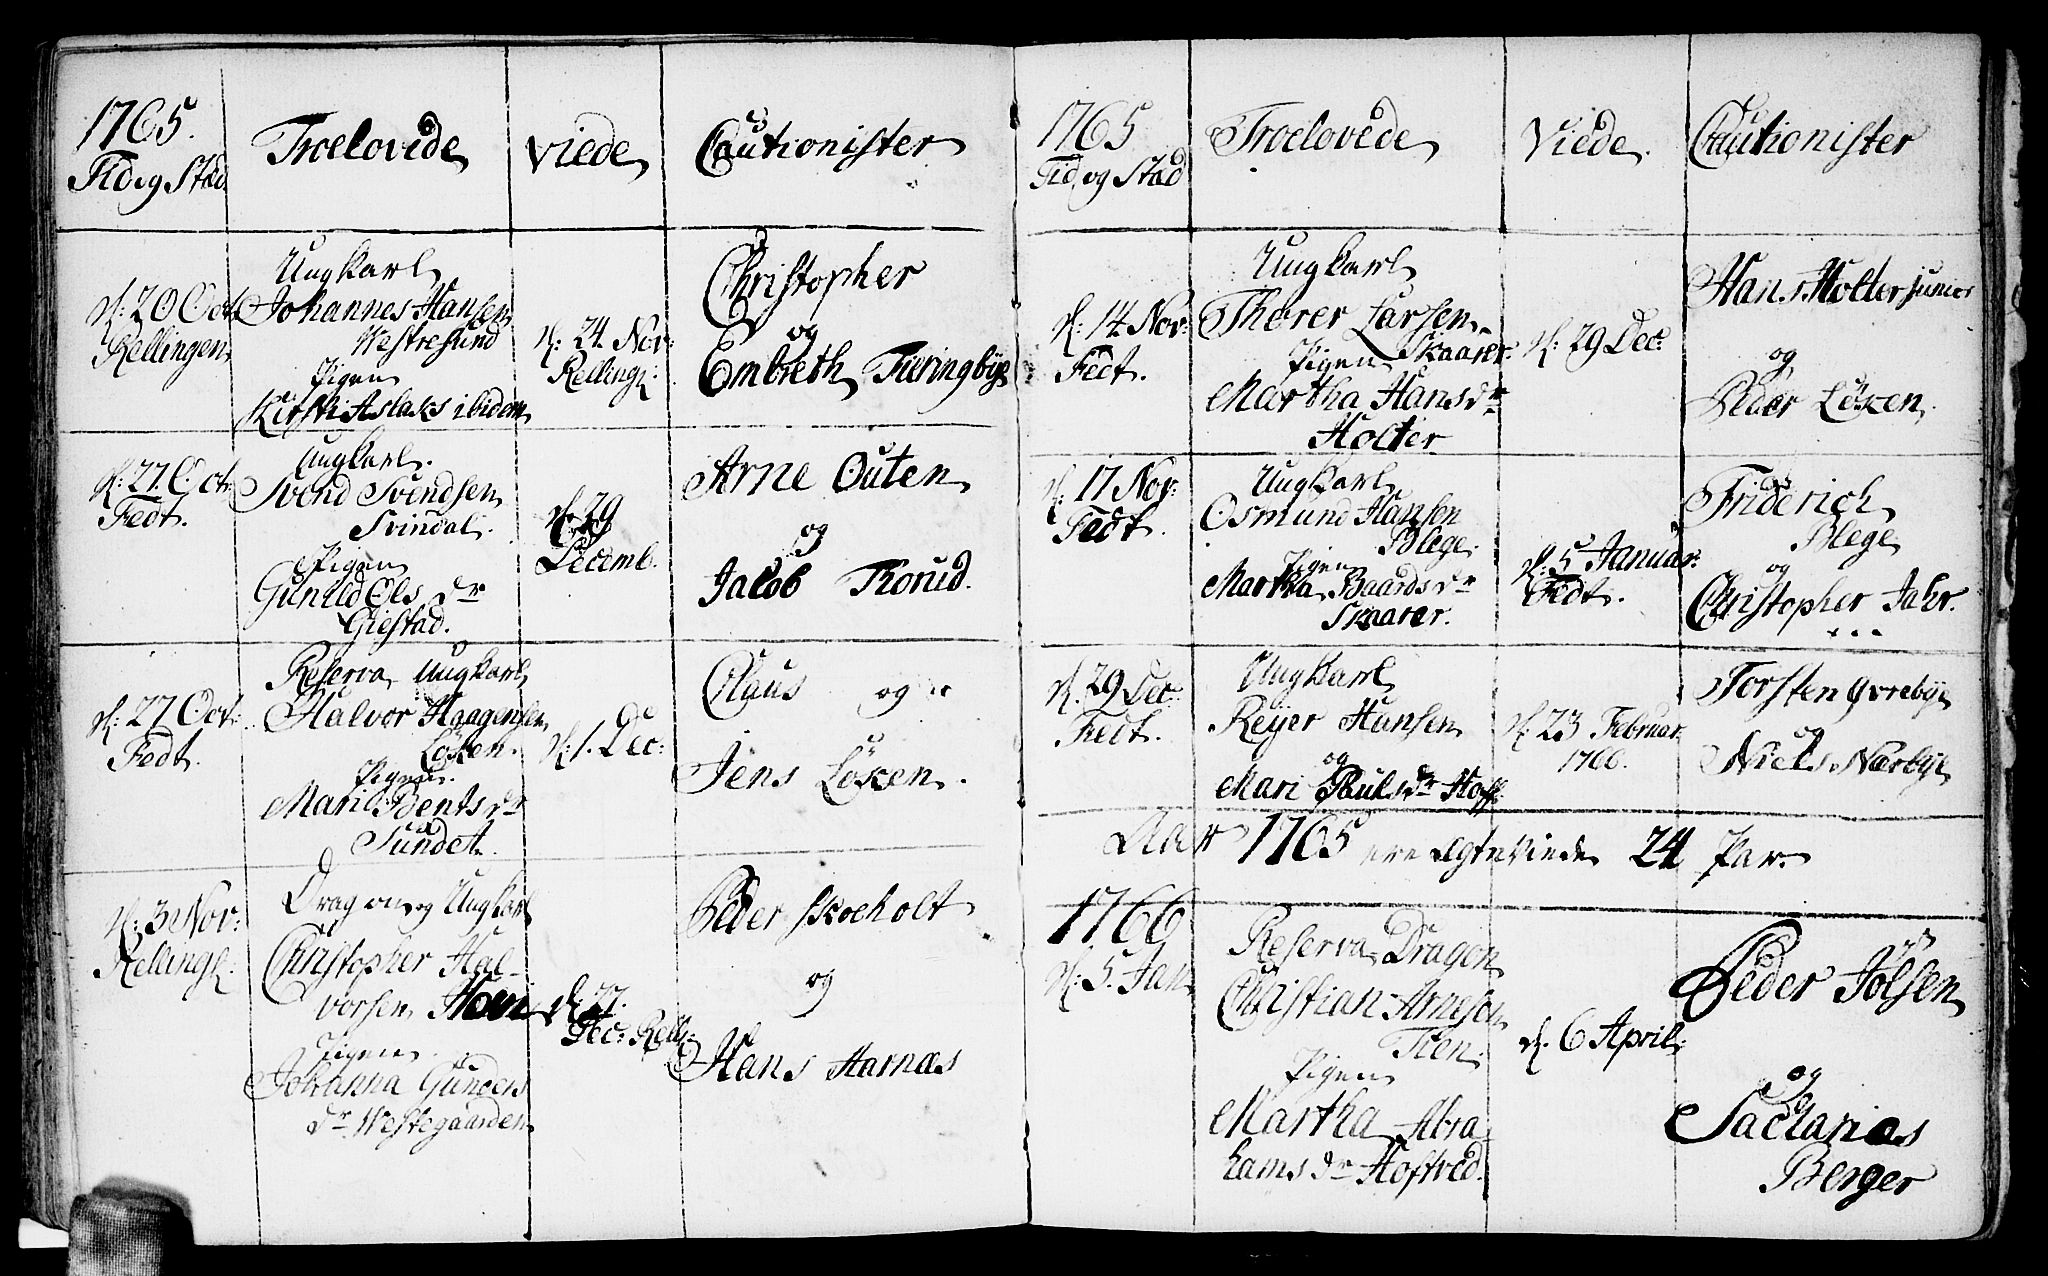 1765.
Tid og Stad
Troelovede
viede
Cautionister
d: 20 Oct:
Kellingen
Ungkarl
Johannes Hansen
Westresund
Pigen
Kirsti Aslaks ibidem
d: 24 Nov:
Kelling:
Christopher
og
Embreth Tæringbye
d: 27. Oct:
Fedt.
Ungkarl.
Svend Svendsen
Svindal.
Pigen
Gunild Ols dr
Giestad.
d. 29
Decemb.
Arne Outen
og
Jacob Torud.
d: 27 Oct:
Fedt.
Reserva Ungkarl
Halvor Haagensen
Løken.
Pigen.
Mari Bents dr
Sundet.
d: 1. Dec:
Claus og
Jens Løken.
d: 3 Nov:
Kelling:
Dragon og Ungkarl
Christopher Hal-
vorsen Hovi
Pigen
Johanna Gunders
dr Westegaarden
d. 27.
Dec: Kell:
Peder Skoeholt
og
Hans Harnæs
1765
Tid og Stad
Troelovede
Viede.
Cautionister
d: 14 Nov:
Fedt.
Ungkarl
Thorer Larsen
Skaarer.
Pigen
Martha Hansdr
Holter
d: 29 Dec:
Hans Holter junior
og
Peder Løken.
d: 17 Nov:
Fedt.
Ungkarl
Osmund Hansen
Blege.
Pigen
Martha Baards dr
Skaarer.
d: 5 Januar:
Fedt.
Friderich
Blege
og
Christopher Jahr.
d: 29 Dec:
Fedt.
Ungkarl
Reyer Hansen
og
Mari Pouls dr Hoff.
d: 23 Februar:
1766.
Torsten Øvrebye
og
Niels Nærbye
Aar 1765 ere ægteviede 24 Par.
1766
d: 5. Jan
Reserva Dragon
Christian Arnesen
Tien.
Pigen
Martha Abra
hams dr Hoftved.
d. 6 April:
Peder Jølsen
og
Sacharias
Berger